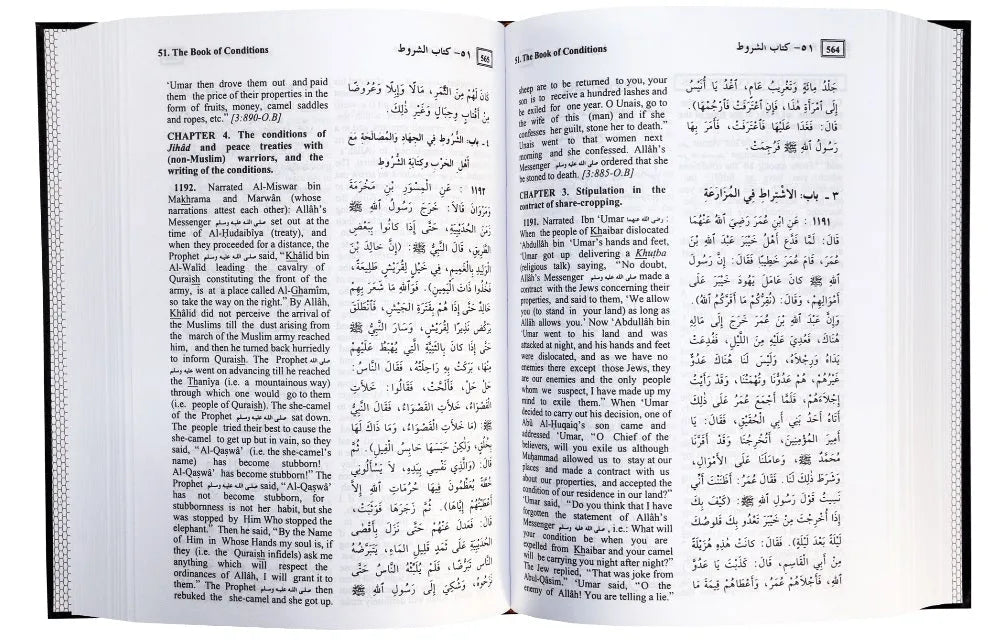 51. The Book of Conditions
٥١- كتاب الشروط
564
sheep are to be returned to you, your
son is to receive a hundred lashes and
be exiled for one year. O Unais, go to
the wife of this (man) and if she
confesses her guilt, stone her to death."
Unais went to that women next
morning and she confessed. Allâh's
Messenger صلى الله عليه وسلم ordered that she
be stoned to death. [3:885-O.B]
CHAPTER 3. Stipulation in the
contract of share-cropping.
1191. Narrated Ibn 'Umar رضى الله عنهما :
When the people of Khaibar dislocated
'Abdullâh bin 'Umar's hands and feet,
'Umar got up delivering a Khutba
(religious talk) saying, "No doubt,
Allâh's Messenger صلى الله عليه وسلم made a
contract with the Jews concerning their
properties, and said to them, 'We allow
you (to stand in your land) as long as
Allâh allows you.' Now 'Abdullâh bin
'Umar went to his land and was
attacked at night, and his hands and feet
were dislocated, and as we have no
enemies there except those Jews, they
are our enemies and the only people
whom we suspect, I have made up my
mind to exile them." When 'Umar
decided to carry out his decision, one of
Abû Al-Huqaiq's son came and
addressed 'Umar, "O Chief of the
believers, will you exile us although
Muhammad allowed us to stay at our
places and made a contract with us
about our properties, and accepted the
condition of our residence in our land?"
'Umar said, "Do you think that I have
forgotten the statement of Allâh's
Messenger صلى الله عليه وسلم, i.e.: What will
your condition be when you are
expelled from Khaibar and your camel
will be carrying you night after night?"
The Jew replied, "That was joke from
Abul-Qâsim," 'Umar said, "O the
enemy of Allâh! You are telling a lie."
جَلْدُ مِائَةٍ وَتَغْرِيبُ عَامٍ، اغْدُ يَا أُنَيْسُ
إِلَى امْرَأَةِ هٰذَا، فَإِنِ اعْتَرَفَتْ فَارْجُمْهَا).
قَالَ: فَغَدَا عَلَيْهَا فَاعْتَرَفَتْ، فَأَمَرَ بِهَا
رَسُولُ اللهِ ﷺ فَرُجِمَتْ.
٣ ـ باب: الاشْتِراط في المُزارَعَة
١١٩١ : عَنِ ابْنِ عُمَرَ رَضِيَ اللهُ عَنْهُمَا
قَالَ: لَمَّا فَدَعَ أَهْلُ خَيْبَرَ عَبْدَ اللهِ بْنَ
عُمَرَ، قَامَ عُمَرُ خَطِيبًا فَقَالَ: إِنَّ رَسُولَ
اللهِ ﷺ كَانَ عَامَلَ يَهُودَ خَيْبَرَ عَلَى
أَمْوَالِهِمْ، وَقَالَ: (نُقِرُّكُمْ مَا أَقَرَّكُمُ اللهُ).
وَإِنَّ عَبْدَ اللهِ بْنَ عُمَرَ خَرَجَ إِلَى مَالِهِ
هُنَاكَ، فَعُدِيَ عَلَيْهِ مِنَ اللَّيْلِ، فَفُدِعَتْ
يَدَاهُ وَرِجْلاَهُ، وَلَيْسَ لَنَا هُنَاكَ عَدُوٌّ
غَيْرُهُمْ، هُمْ عَدُوُّنَا وَتُهْمَتُنَا، وَقَدْ رَأَيْتُ
إِجْلاَءَهُمْ، فَلَمَّا أَجْمَعَ عُمَرُ عَلَى ذٰلِكَ
أَتَاهُ أَحَدُ بَنِي أَبِي الْحُقَيْقِ، فَقَالَ: يَا
أَمِيرَ الْمُؤْمِنِينَ، أَتُخْرِجُنَا وَقَدْ أَقَرَّنَا
مُحَمَّدٌ ﷺ، وَعَامَلَنَا عَلَى الأَمْوَالِ،
وَشَرَطَ ذٰلِكَ لَنَا. فَقَالَ عُمَرُ: أَظَنَنْتَ أَنِّي
نَسِيتُ قَوْلَ رَسُولِ اللهِ ﷺ: (كَيْفَ بِكَ
إِذَا أُخْرِجْتَ مِنْ خَيْبَرَ تَعْدُو بِكَ قَلُوصُكَ
لَيْلَةً بَعْدَ لَيْلَةٍ). فَقَالَ: كَانَتْ هٰذِهِ هُزَيْلَةً
مِنْ أَبِي الْقَاسِمِ، قَالَ: كَذَبْتَ يَا عَدُوَّ
اللهِ، فَأَجْلاَهُمْ عُمَرُ، وَأَعْطَاهُمْ قِيمَةَ مَا
51. The Book of Conditions
٥١- كتاب الشروط
565
'Umar then drove them out and paid
them the price of their properties in the
form of fruits, money, camel saddles
and ropes, etc." [3:890-O.B]
CHAPTER 4. The conditions of
Jihâd and peace treaties with
(non-Muslim) warriors, and the
writing of the conditions.
1192. Narrated Al-Miswar bin
Makhrama and Marwân (whose
narrations attest each other): Allâh's
Messenger صلى الله عليه وسلم set out at the
time of Al-Hudaibîya (treaty), and
when they proceeded for a distance, the
Prophet صلى الله عليه وسلم said, "Khâlid bin
Al-Walid leading the cavalry of
Quraish constituting the front of the
army, is at a place called Al-Ghamîm,
so take the way on the right." By Allâh,
Khâlid did not perceive the arrival of
the Muslims till the dust arising from
the march of the Muslim army reached
him, and then he turned back hurriedly
to inform Quraish. The Prophet صلى الله
عليه وسلم went on advancing till he reached
the Thaniya (i.e. a mountainous way)
through which one would go to them
(i.e. people of Quraish). The she-camel
of the Prophet صلى الله عليه وسلم sat down.
The people tried their best to cause the
she-camel to get up but in vain, so they
said, "Al-Qaswâ' (i.e. the she-camel's
name) has become stubborn!
Al-Qaswâ' has become stubborn!" The
Prophet صلى الله عليه وسلم said, "Al-Qaswâ'
has not become stubborn, for
stubbornness is not her habit, but she
was stopped by Him Who stopped the
elephant." Then he said, "By the Name
of Him in Whose Hands my soul is, if
they (i.e. the Quraish infidels) ask me
anything which will respect the
ordinances of Allâh, I will grant it to
them." The Prophet صلى الله عليه وسلم then
rebuked the she-camel and she got up.
كَانَ لَهُمْ مِنَ الثَّمَرِ، مَالًا وَإِبِلًا وَعُرُوضًا
مِنْ أَقْتَابٍ وَحِبَالٍ وَغَيْرِ ذٰلِكَ.
٤ ـ باب: الشُّرُوط في الجِهَاد وَالمُصَالَحَة مَعَ
أهل الحَرْب وكتابة الشُّرُوط
١١٩٢ : عَنِ الْمِسْوَرِ بْنِ مَخْرَمَةَ
وَمَرْوَانَ قَالَا: خَرَجَ رَسُولُ اللهِ ﷺ
زَمَنَ الْحُدَيْبِيَةِ، حَتَّى إِذَا كَانُوا بِبَعْضِ
الطَّرِيقِ، قَالَ النَّبِيُّ ﷺ: (إِنَّ خَالِدَ بْنَ
الْوَلِيدِ بِالْغَمِيمِ، فِي خَيْلٍ لِقُرَيْشٍ طَلِيعَةً،
فَخُذُوا ذَاتَ الْيَمِينِ). فَوَاللهِ مَا شَعَرَ بِهِمْ
خَالِدٌ حَتَّى إِذَا هُمْ بِقَتَرَةِ الْجَيْشِ، فَانْطَلَقَ
يَرْكُضُ نَذِيرًا لِقُرَيْشٍ، وَسَارَ النَّبِيُّ ﷺ
حَتَّى إِذَا كَانَ بِالثَّنِيَّةِ الَّتِي يُهْبَطُ عَلَيْهِمْ
مِنْهَا، بَرَكَتْ بِهِ رَاحِلَتُهُ، فَقَالَ النَّاسُ:
حَلْ حَلْ، فَأَلَحَّتْ، فَقَالُوا: خَلأَتِ
الْقَصْوَاءُ، خَلأَتِ الْقَصْوَاءُ، فَقَالَ النَّبِيُّ
ﷺ: (مَا خَلأَتِ الْقَصْوَاءُ، وَمَا ذَاكَ لَهَا
بِخُلُقٍ، وَلٰكِنْ حَبَسَهَا حَابِسُ الْفِيلِ). ثُمَّ
قَالَ: (وَالَّذِي نَفْسِي بِيَدِهِ، لاَ يَسْأَلُونَنِي
خُطَّةً يُعَظِّمُونَ فِيهَا حُرُمَاتِ اللهِ إِلَّا
أَعْطَيْتُهُمْ إِيَّاهَا). ثُمَّ زَجَرَهَا فَوَثَبَتْ،
قَالَ: فَعَدَلَ عَنْهُمْ حَتَّى نَزَلَ بِأَقْصَى
الْحُدَيْبِيَةِ عَلَى ثَمَدٍ قَلِيلِ الْمَاءِ، يَتَبَرَّضُهُ
النَّاسُ تَبَرُّضًا، فَلَمْ يُلَبِّثْهُ النَّاسُ حَتَّى
نَزَحُوهُ، وَشُكِيَ إِلَى رَسُولِ اللهِ ﷺ